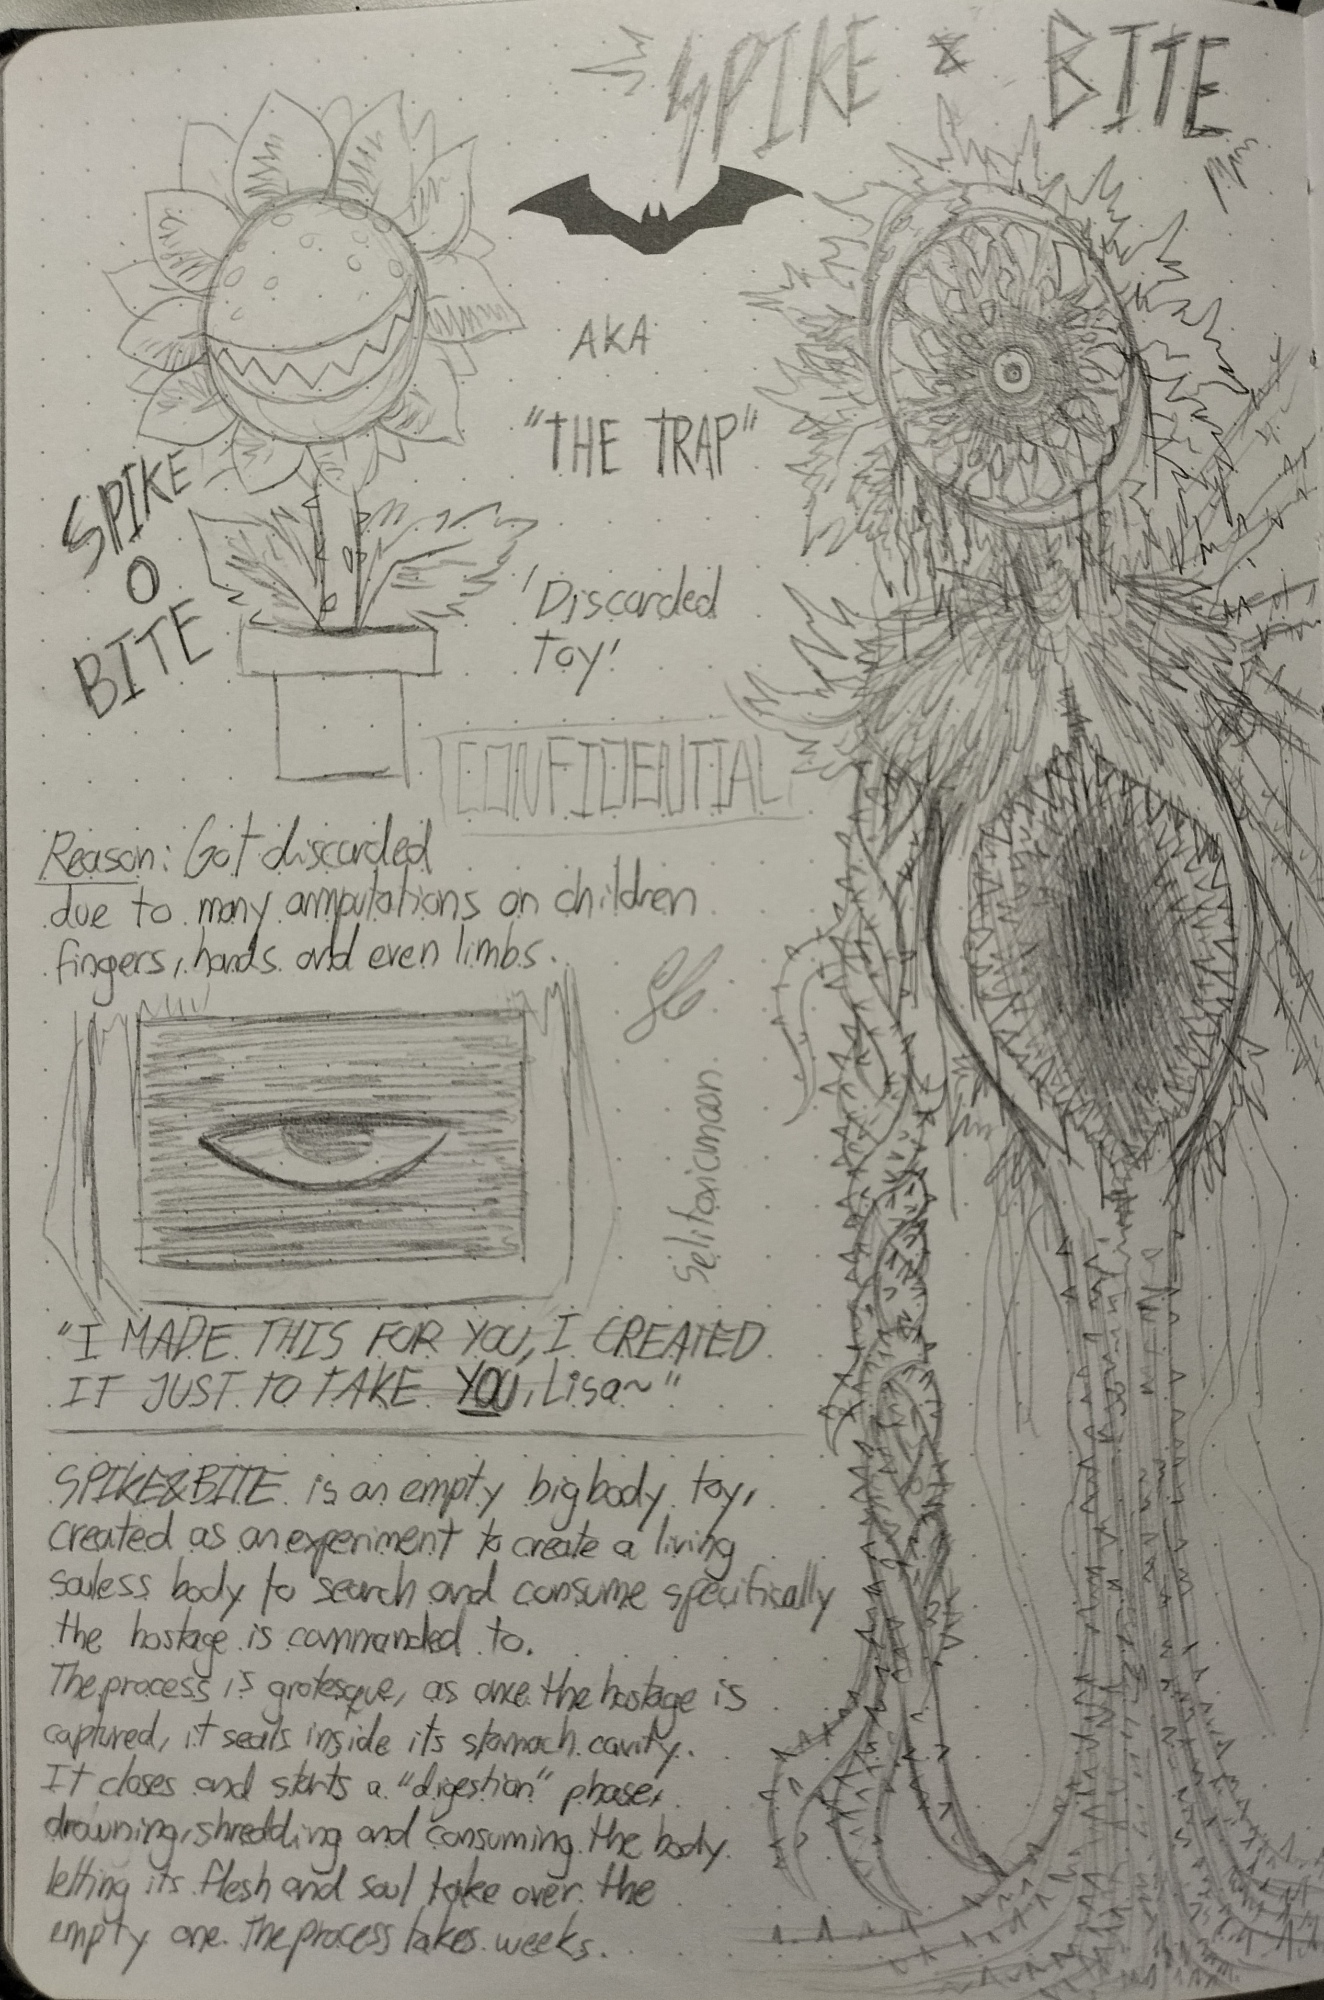 SPIKE & BITE
AKA
"THE TRAP"
SPIKE
O
BITE
'Discarded
Toy'
CONFIDENTIAL
Reason: Got discarded
due to many amputations on children
fingers, hands and even limbs.
Selitoxicmoon
"I MADE THIS FOR YOU, I CREATED
IT JUST TO TAKE YOU, Lisa~"
SPIKE&BITE is an empty big body toy,
created as an experiment to create a living
souless body to search and consume specifically
the hostage is commanded to.
The process is grotesque, as once the hostage is
captured, it seals inside its stomach cavity.
It closes and starts a "digestion" phase,
drowning, shredding and consuming the body
letting its flesh and soul take over the
empty one. The process takes weeks.